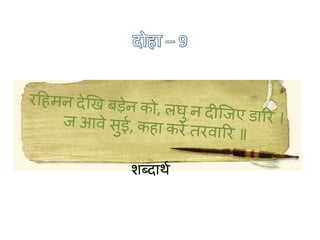 दोहा – 9
रहिमन देखि बड़ेन को, लघु न दीजिए डारि ।
ज आवे सुई, कहा करे तरवारि ॥
शब्दार्थ